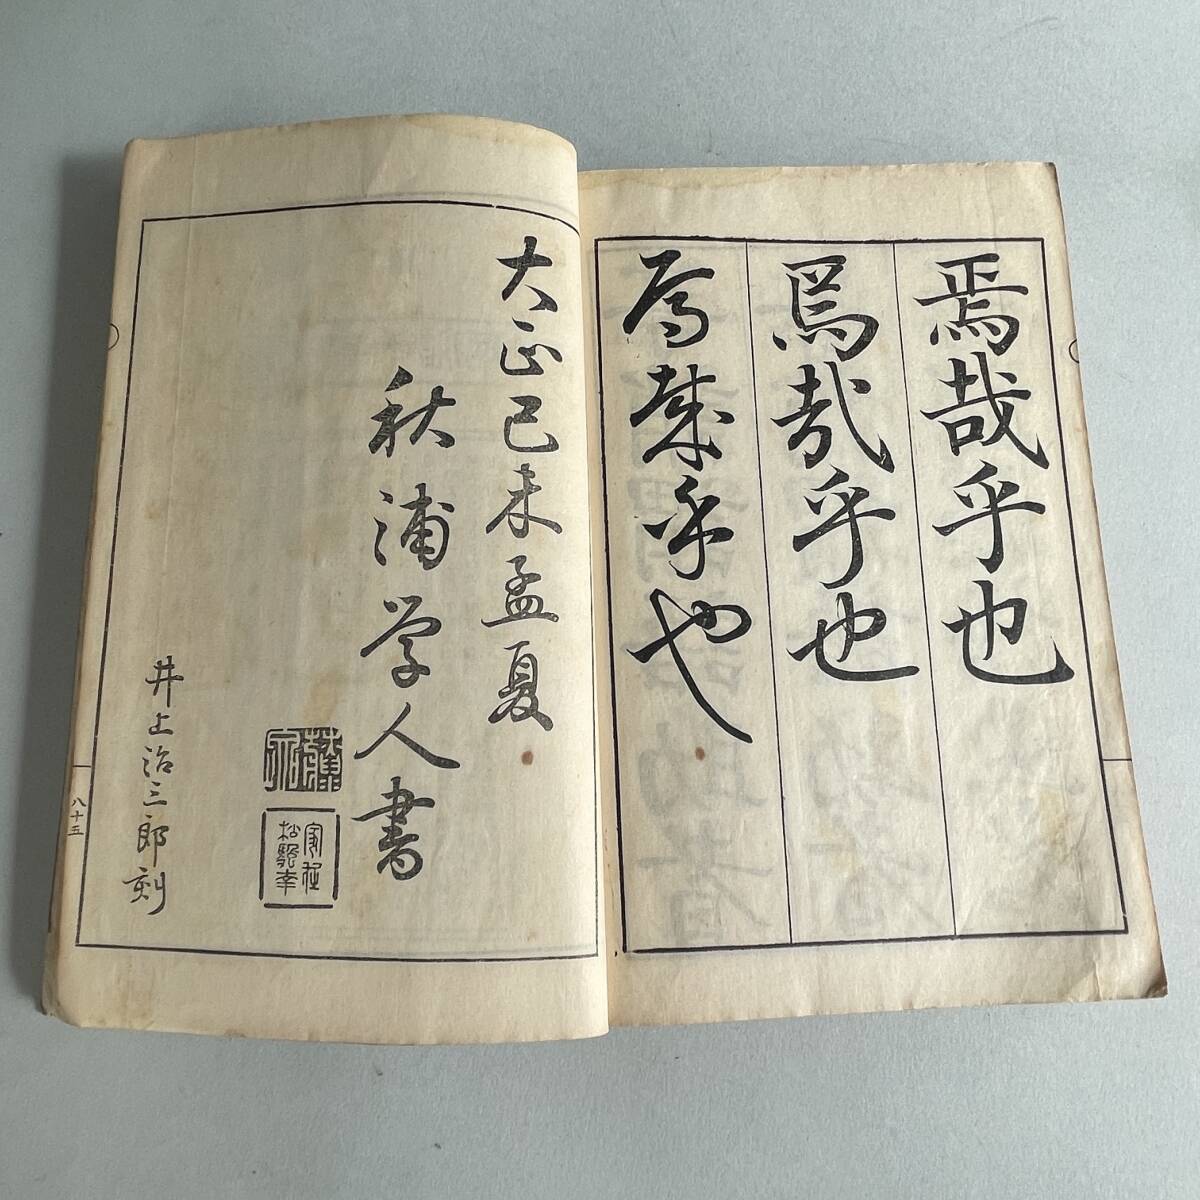 焉哉乎也
焉哉乎也
焉哉乎也
大正己未孟夏
秋浦学人書
井上治三郎刻
八十五